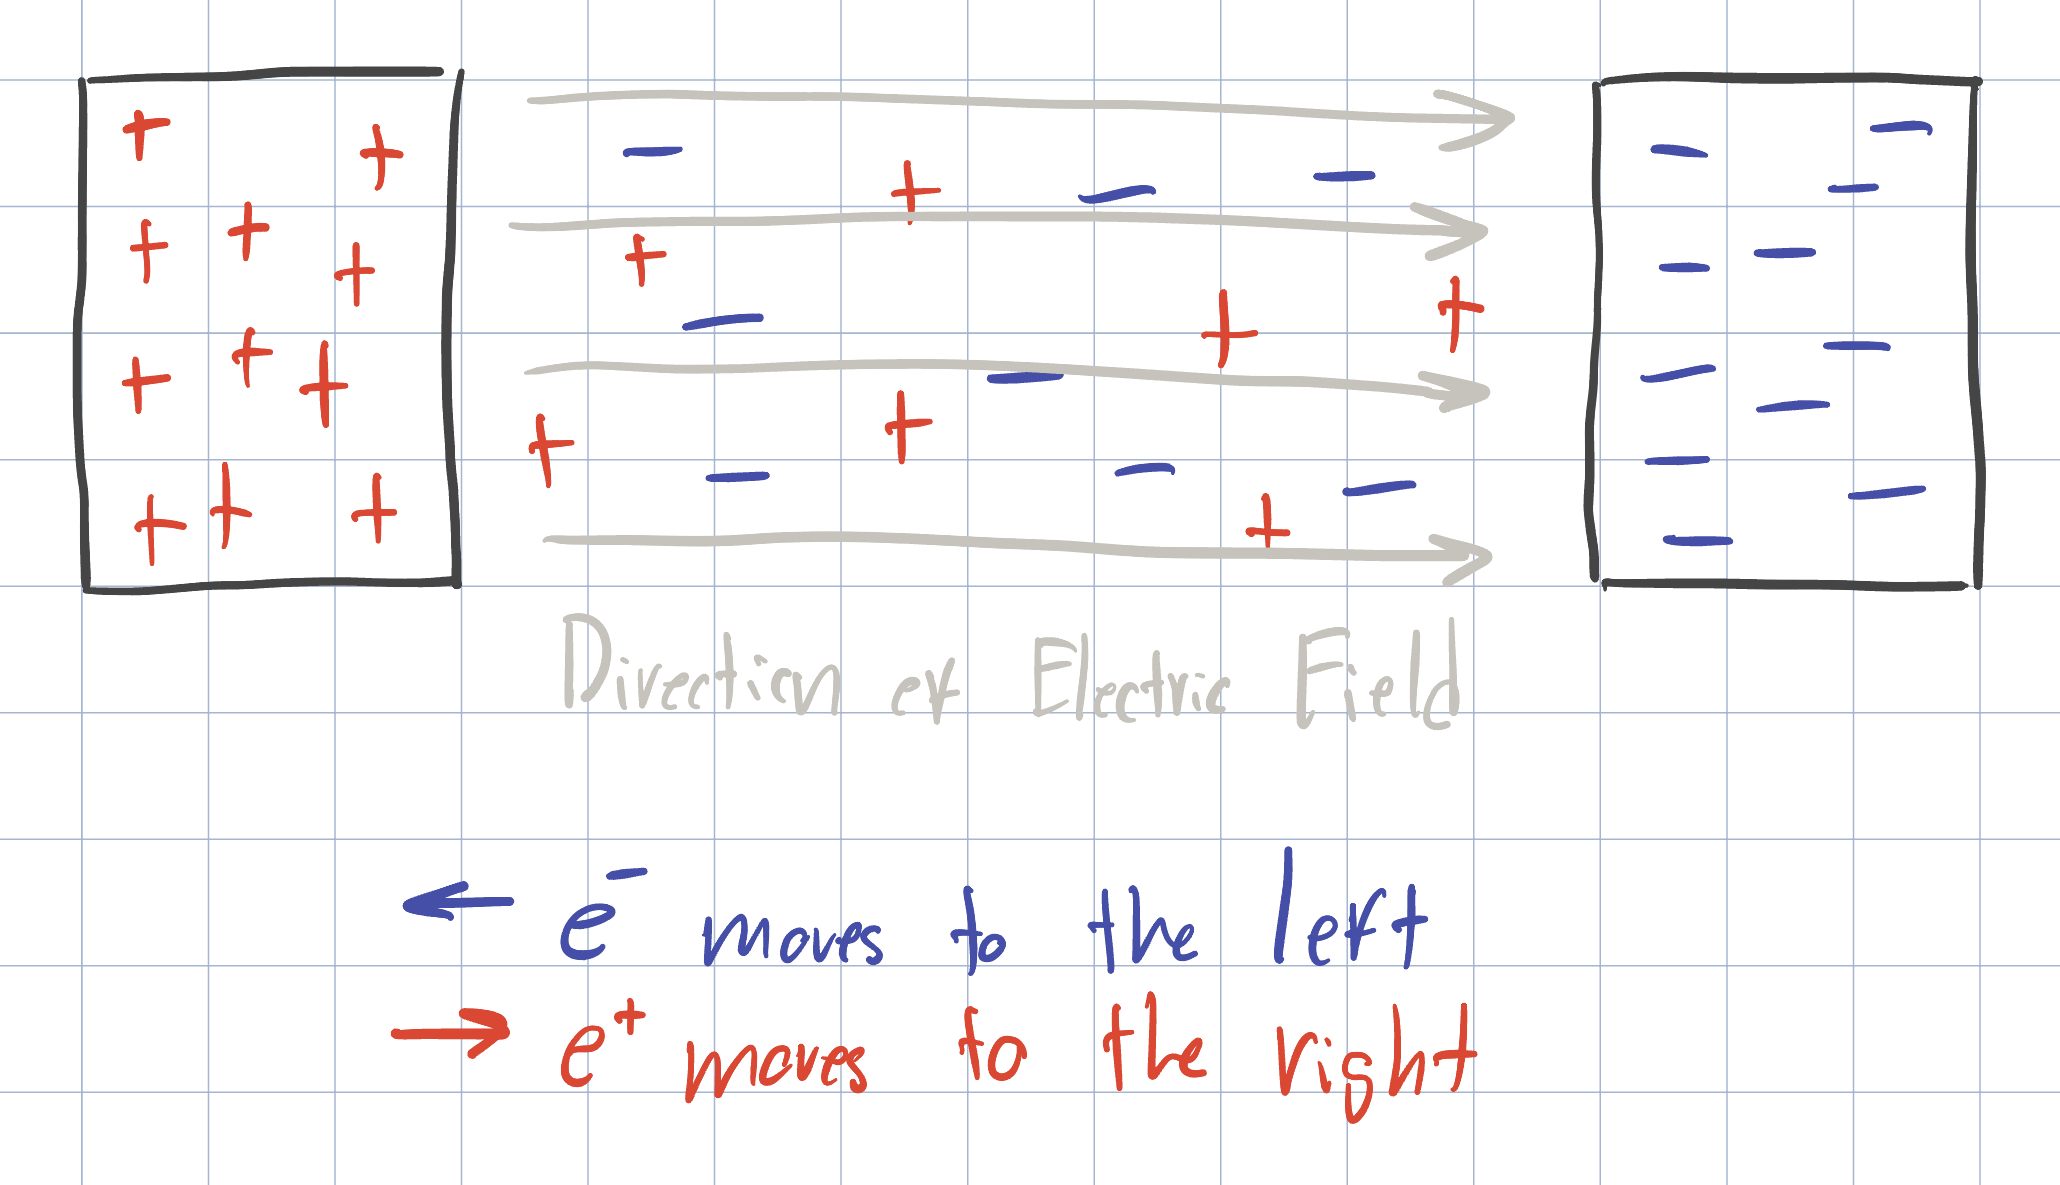 Direction of Electric Field
← e⁻ moves to the left
→ e⁺ moves to the right